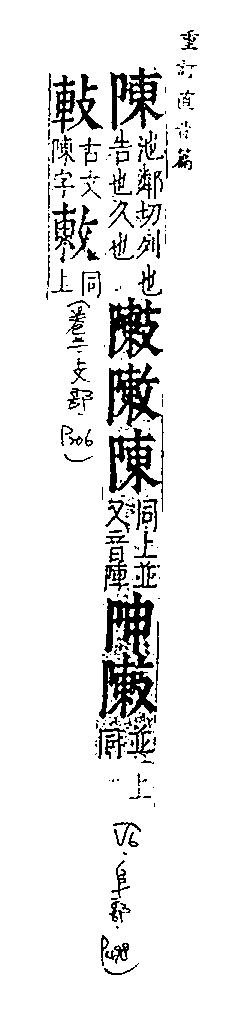 重訂直音篇
陳
池鄰切列也
告也久也
敶
陳
同上並
又音陣
並上
同
V6.阜部.P498)
軙
古文
陳字
同
上
(卷二攴部.P306)